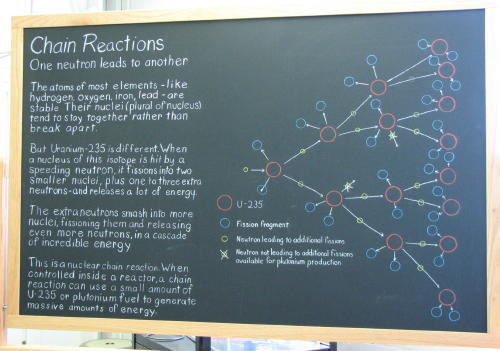 Chain Reactions
One neutron leads to another
The atoms of most elements - like
hydrogen, oxygen, iron, lead - are
stable. Their nuclei (plural of nucleus)
tend to stay together rather than
break apart.
But Uranium-235 is different. When
a nucleus of this isotope is hit by a
speeding neutron, it fissions into two
smaller nuclei, plus one to three extra
neutrons - and releases a lot of energy.
The extra neutrons smash into more
nuclei, fissioning them and releasing
even more neutrons, in a cascade
of incredible energy
This is a nuclear chain reaction. When
controlled inside a reactor, a chain
reaction can use a small amount of
U-235 or plutonium fuel to generate
massive amounts of energy.
U-235
Fission fragment
Neutron leading to additional fissions
Neutron not leading to additional fissions
available for plutonium production